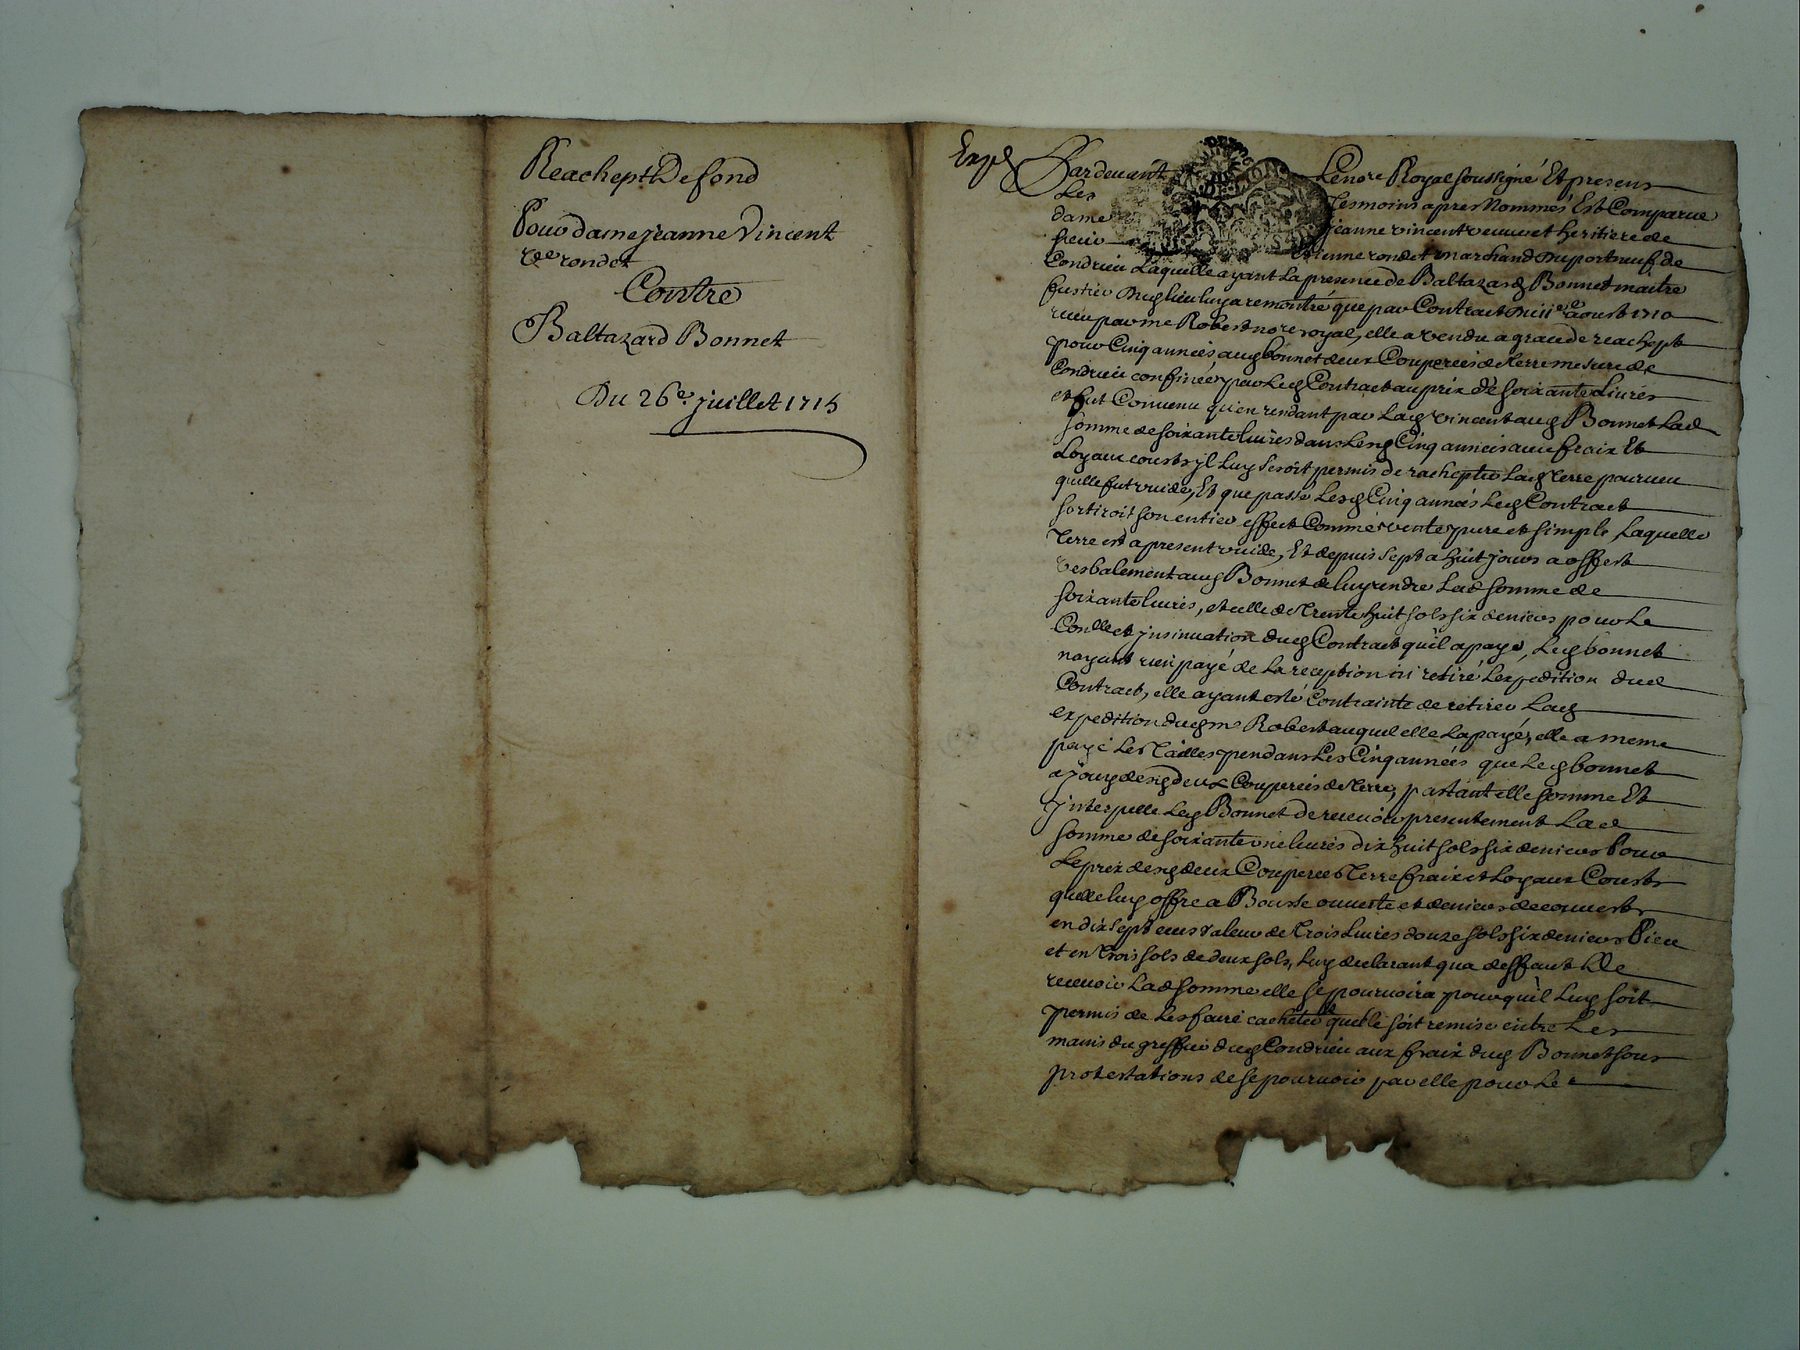 Reachept De fond
Pour dame jeanne Vincent
ve rondet
Contre
Baltazard Bonnet
Du 26e juillet 1715
Expd
Pardevant Le nore Royal soussigné Et presens
Les Tesmoins apres Nommés Est Comparue
dame jeanne vincent veuve et heritiere de
sieur estienne rondet marchand du port neuf de
Condrieu Laquelle ayant La presence de Baltazard Bonnet maitre
fustier dud lieu luy a remontré que par Contract du 11e aoust 1710
receu par me Robert nore royal, elle a vendu a grace de reachept
pour Cinq années aud bonnet deux Couperées de Terre mesure de
Condrieu confinées par Led Contract au prix de soixante Livres
et fut Convenu qu'en rendant par Lad vincent aud Bonnet Lad
somme de soixante livres dans Lesd Cinq années avec fraix Et
Loyaux cousts jl Luy seroit permis de rachepter Lad Terre pourveu
quelle fut vuide, Et que passé Lesd Cinq années Led Contract
sortiroit son entier effect Comme vente pure et simple, Laquelle
Terre est a present vuide, Et depuis sept a huit jours a offert
verbalement aud Bonnet de luy rendre Lad somme de
soixante livres, et celle de Trente huit sols six deniers pour Le
Conlle et jnsinuation dud Contract qu'il a payé, Led bonnet
nayant rien payé de La reception ni retiré Lexpedition dud
Contract, elle ayant esté Contrainte de retirer Lad
expedition dud me Robert auquel elle La payé, elle a meme
payé Les Tailles pendant Les Cinq années que Led bonnet
a jouy desd deux Couperées de Terre, partant elle somme Et
jnterpelle Led Bonnet de recevoir presentement Lad
somme de soixante une livres dix huit sols six deniers Pour
Le prix desd deux Couperées Terre fraix et Loyaux Cousts
quelle luy offre a Bourse ouverte et deniers decouverts
en dix sept ecus valeur de Trois Livres douze sols six deniers Piece
et en Trois sols de deux sols, Luy declarant qua deffaut De
recevoir Lad somme elle se pourvoira pour qu'il Luy soit
permis de Les faire cacheter quelle soit remise entre Les
mains du greffier dud Condrieu aux fraix dud Bonnet sous
protestations de se pourvoir par elle pour Le